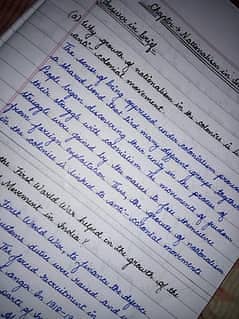 Chapter-2 Nationalism in
Answer in brief
(a) Why growth of nationalism in the colonies is
anti-colonial movement.
The sense of being oppressed under colonialism provided
a shared bond that tied many different groups together.
People began discovering their unity in the process of
their struggle with colonialism. The movement
struggle were guard by the masses to free themselves
from foreign exploitation. Thus the growth of nationalism
in the colonies is linked to anti-colonial movements.
the First World War helped in the growth of the
Movement in India?
First World War to finance the defence
customs duties were raised and
forced recruitment in
in 1918-19